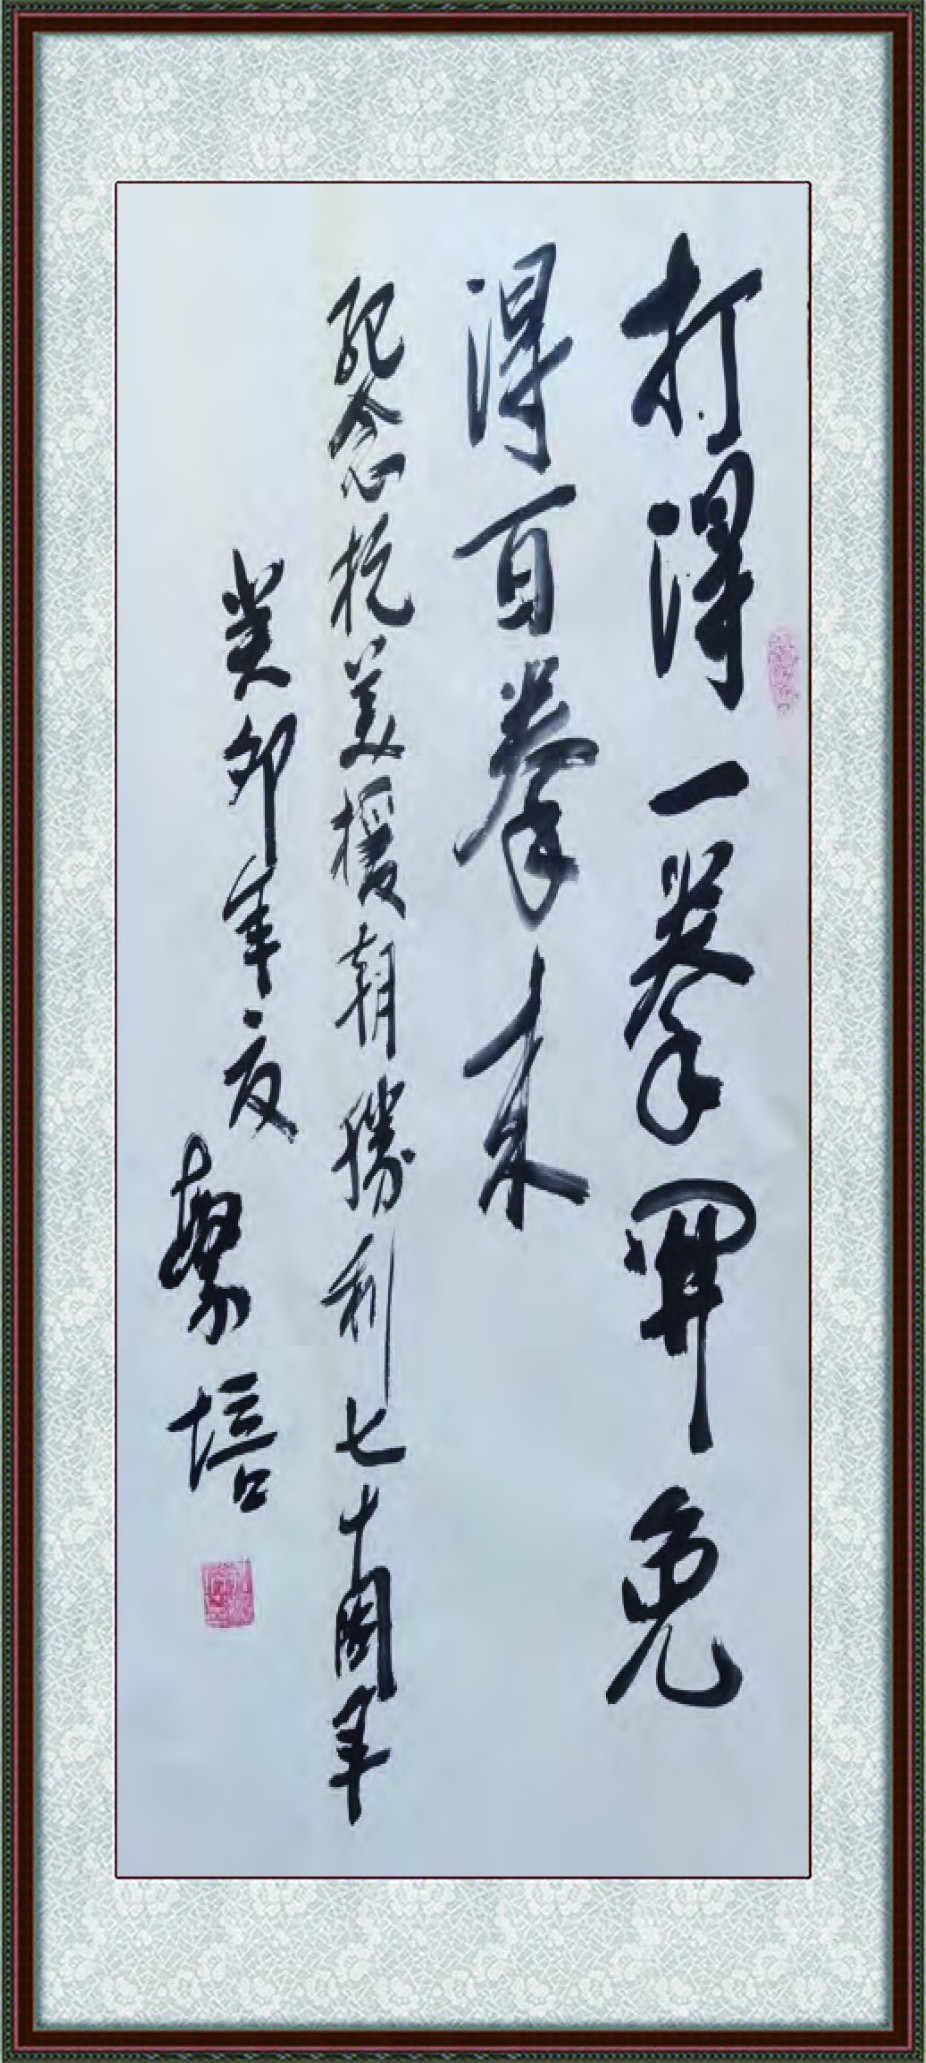 打得一拳開免
得百拳来
紀念抗美援朝勝利七十周年
癸卯年夏
繫培